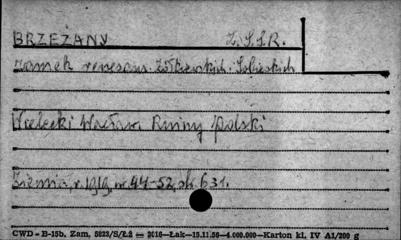 BRZEŻANY Z.S.S.R.
zamek renesans. Żółkiewskich. Sobieskich
Wacław Ruiny Polski
Ziemia, r. 1919, nr 44-52, str. 631.
CWD - B-15b. Zam. 5823/S/Łż — 2016—Łak—15.11.56—4.000.000—Karton kl. IV A1/200 g